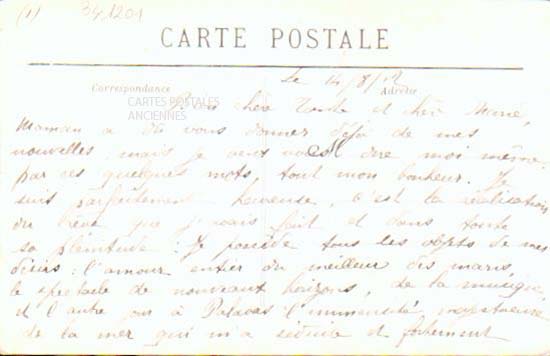 (1) 34.1201
CARTE POSTALE
Le 14/8/12
Correspondance Adresse
CARTES POSTALES
ANCIENNES
Bien chère Tante et chère Marie,
Maman a dû vous donner déjà de mes
nouvelles : mais je veux vous dire moi même
par ces quelques mots, tout mon bonheur. Je
suis parfaitement heureuse, c'est la réalisation
du rêve que j'avais fait et dans toute
sa plénitude : Je possède tous les objets de mes
désirs : l'amour entier du meilleur des maris,
le spectacle de nouveaux horizons, de la musique,
et l'autre jour à Palavas l'immensité majestueuse
de la mer qui m'a séduite et fortement